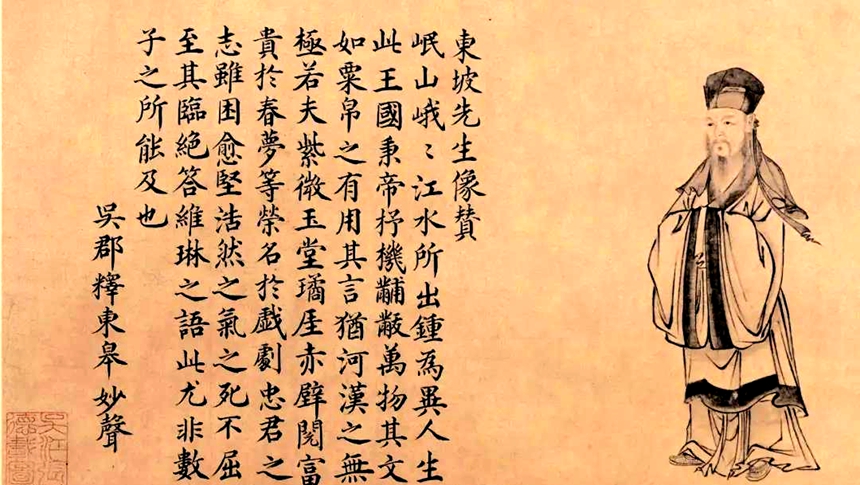 東坡先生像賛
岷山峨〻江水所出鍾為異人生
此王國秉帝杼機黼黻萬物其文
如粟帛之有用其言猶河漢之無
極若夫紫微玉堂瓊厓赤壁閱富
貴於春夢等榮名於戲劇忠君之
志雖困愈堅浩然之氣之死不屈
至其臨絕答維琳之語此尤非數
子之所能及也
吳郡釋東皋妙聲